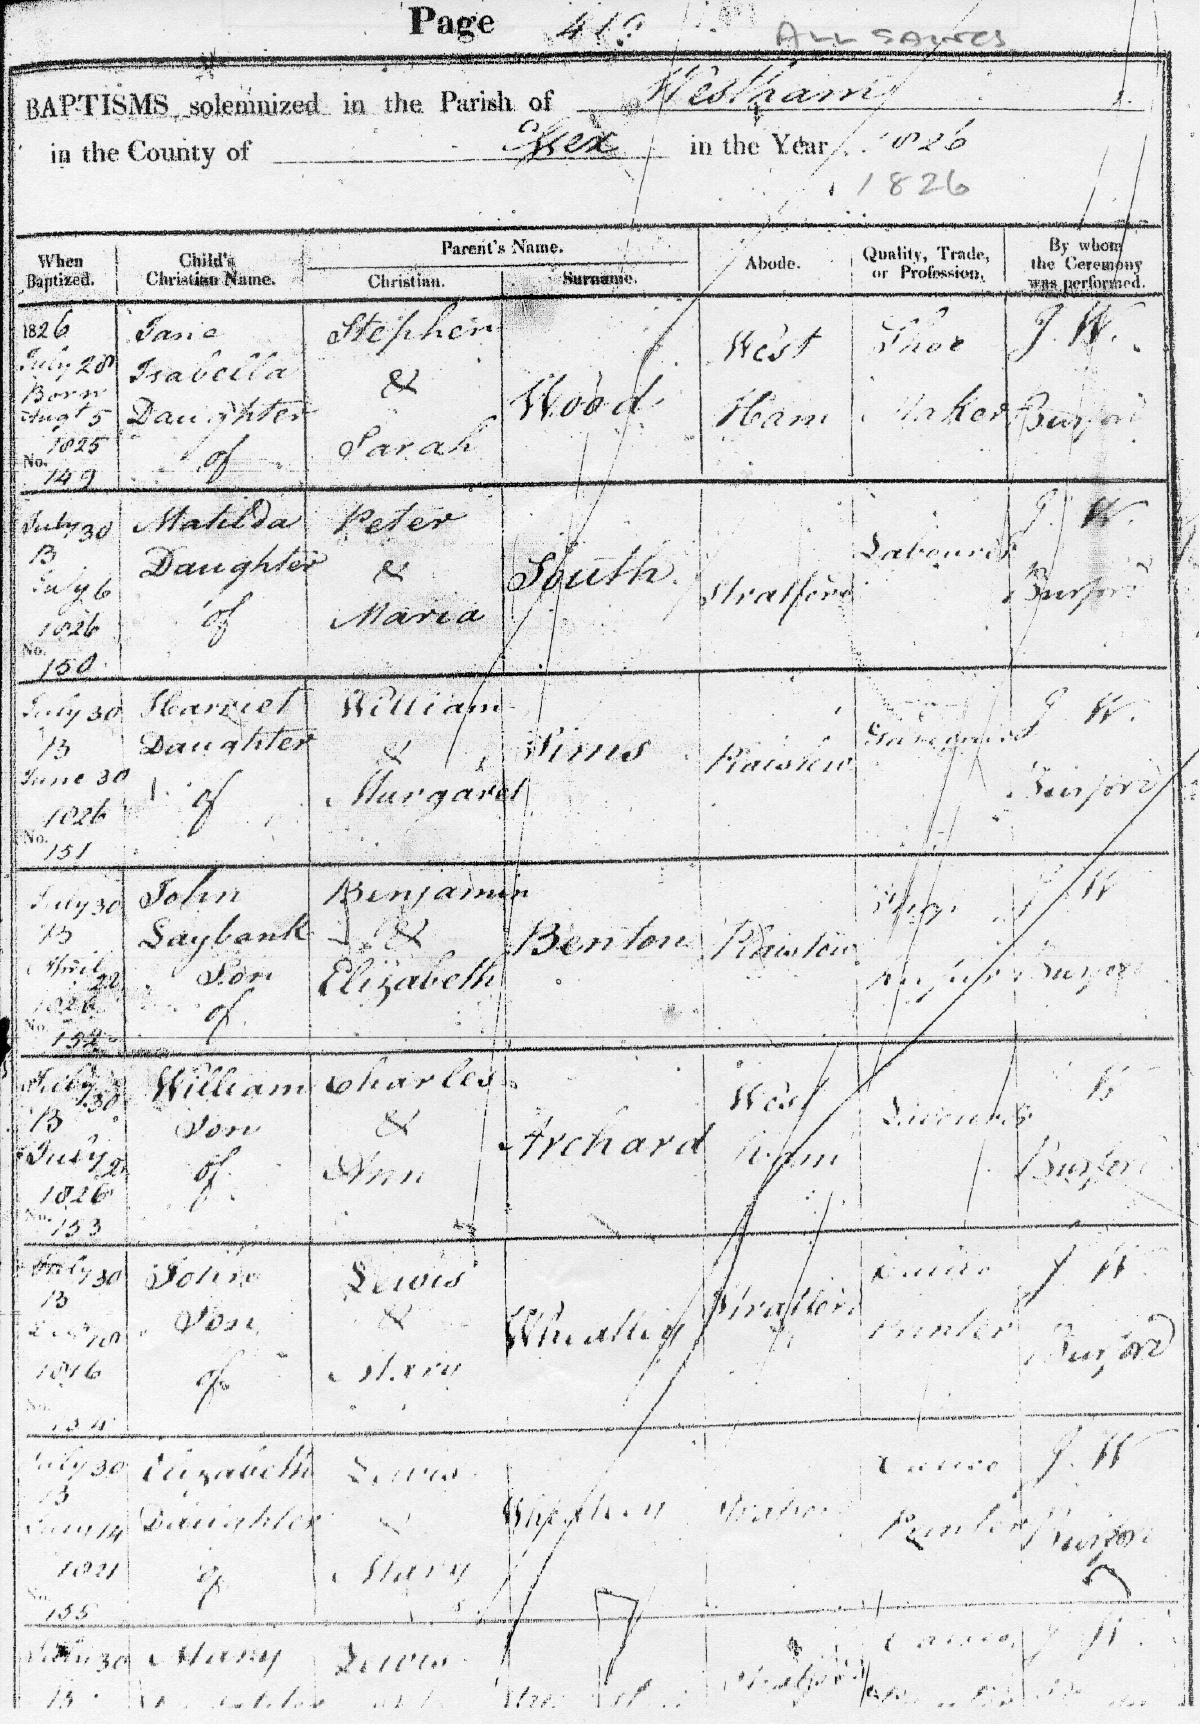 Page 41
ALL SAINTS
BAPTISMS solemnized in the Parish of Westham
in the County of Essex in the Year 1826
1826
When Baptized. Child's Christian Name. Parent's Name. Christian. Surname. Abode. Quality, Trade, or Profession. By whom the Ceremony was performed.
1826 Jane Stephen J. W.
July 28 Isabella & West Shoe
Born Daughter Wood Ham Maker Burford
Augt 5 of Sarah
1825
No. 149
July 30 Matilda Peter J. W.
B Daughter & South Labourer
July 6 of Maria Stratford Burford
1826
No. 150
July 30 Harriet William J. W.
B Daughter & Sims Plaistow
June 30 of Margaret Burford
1826
No. 151
July 30 John Benjamin J W
B Laybank & Benton Plaistow
April 22 Son Elizabeth Burford
1826 of
No. 152
July 30 William Charles West W
B Son & Archard Ham Labourer
July 2 of Ann Burford
1826
No. 153
July 30 John Lewis Calico J W
B Son & Wheatley Stratford Printer
18 of Mary Burford
1816
No. 154
July 30 Elizabeth Lewis Calico J. W
B Daughter & Wheatley Stratford Printer Burford
14 of Mary
1821
No. 155
July 30 Mary Lewis Stratford Calico J W
B